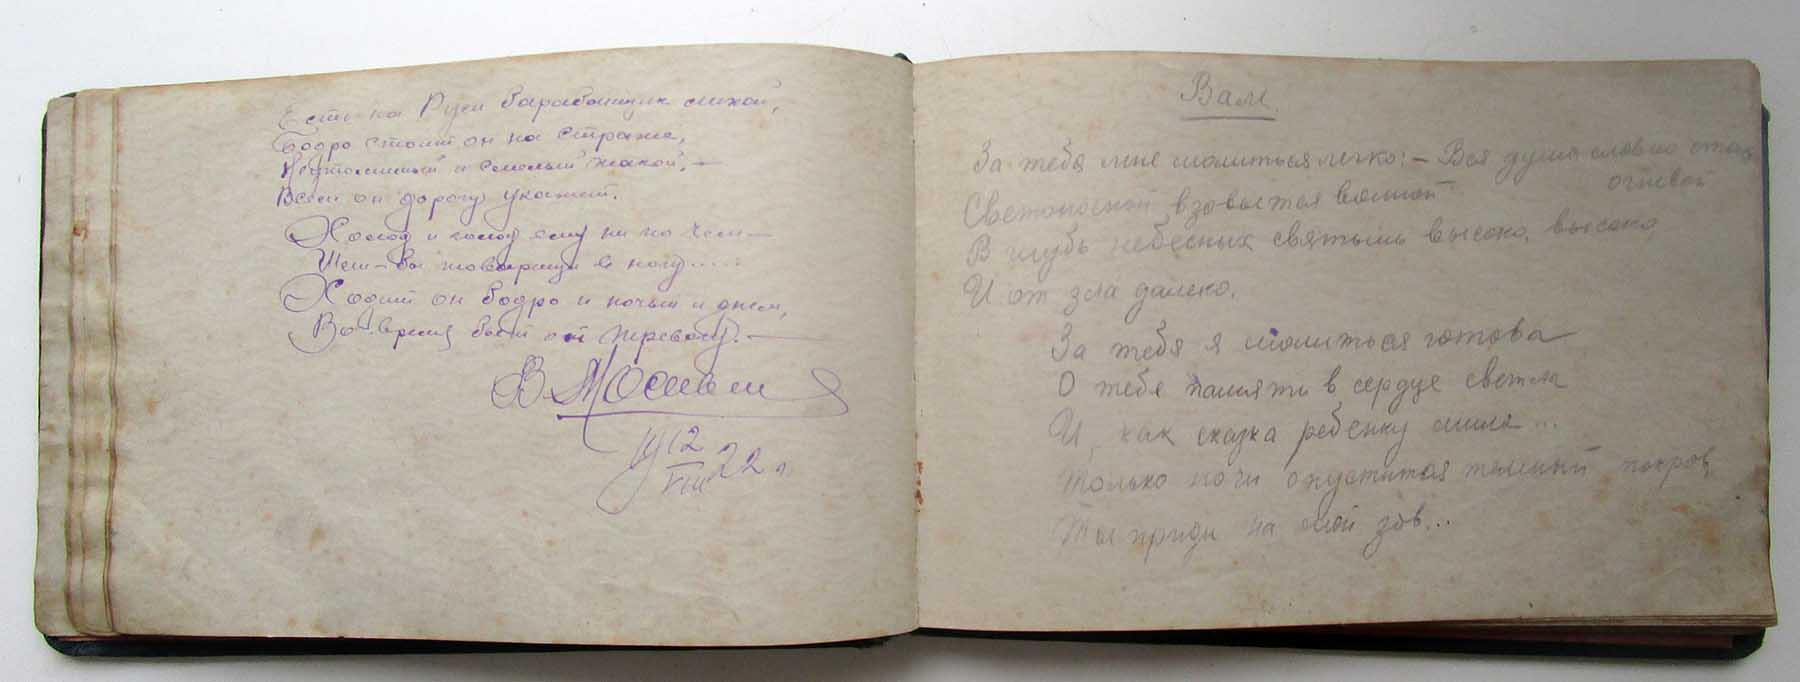 Есть на Руси барабанщик лихой,
Бодро стоит он на страже,
Неутомимый и смелый такой, —
Всем он дорогу укажет.
Холод и голод ему ни по чем —
Шел-бы товарищи в ногу.....
Ходит он бодро и ночью и днем,
Во время бьет он тревогу. —
В.
19 12/VIII 22 г.
Вам.
За тебя мне молиться легко: — Вся душа словно столб
огневой
Светоносной взовьется волной
В глубь небесных святынь высоко, высоко
И от зла далеко.
За тебя я молиться готова
О тебе память в сердце светла
И, как сказка ребенку мила...
Только ночи опустится темный покров,
Ты приди на мой зов...